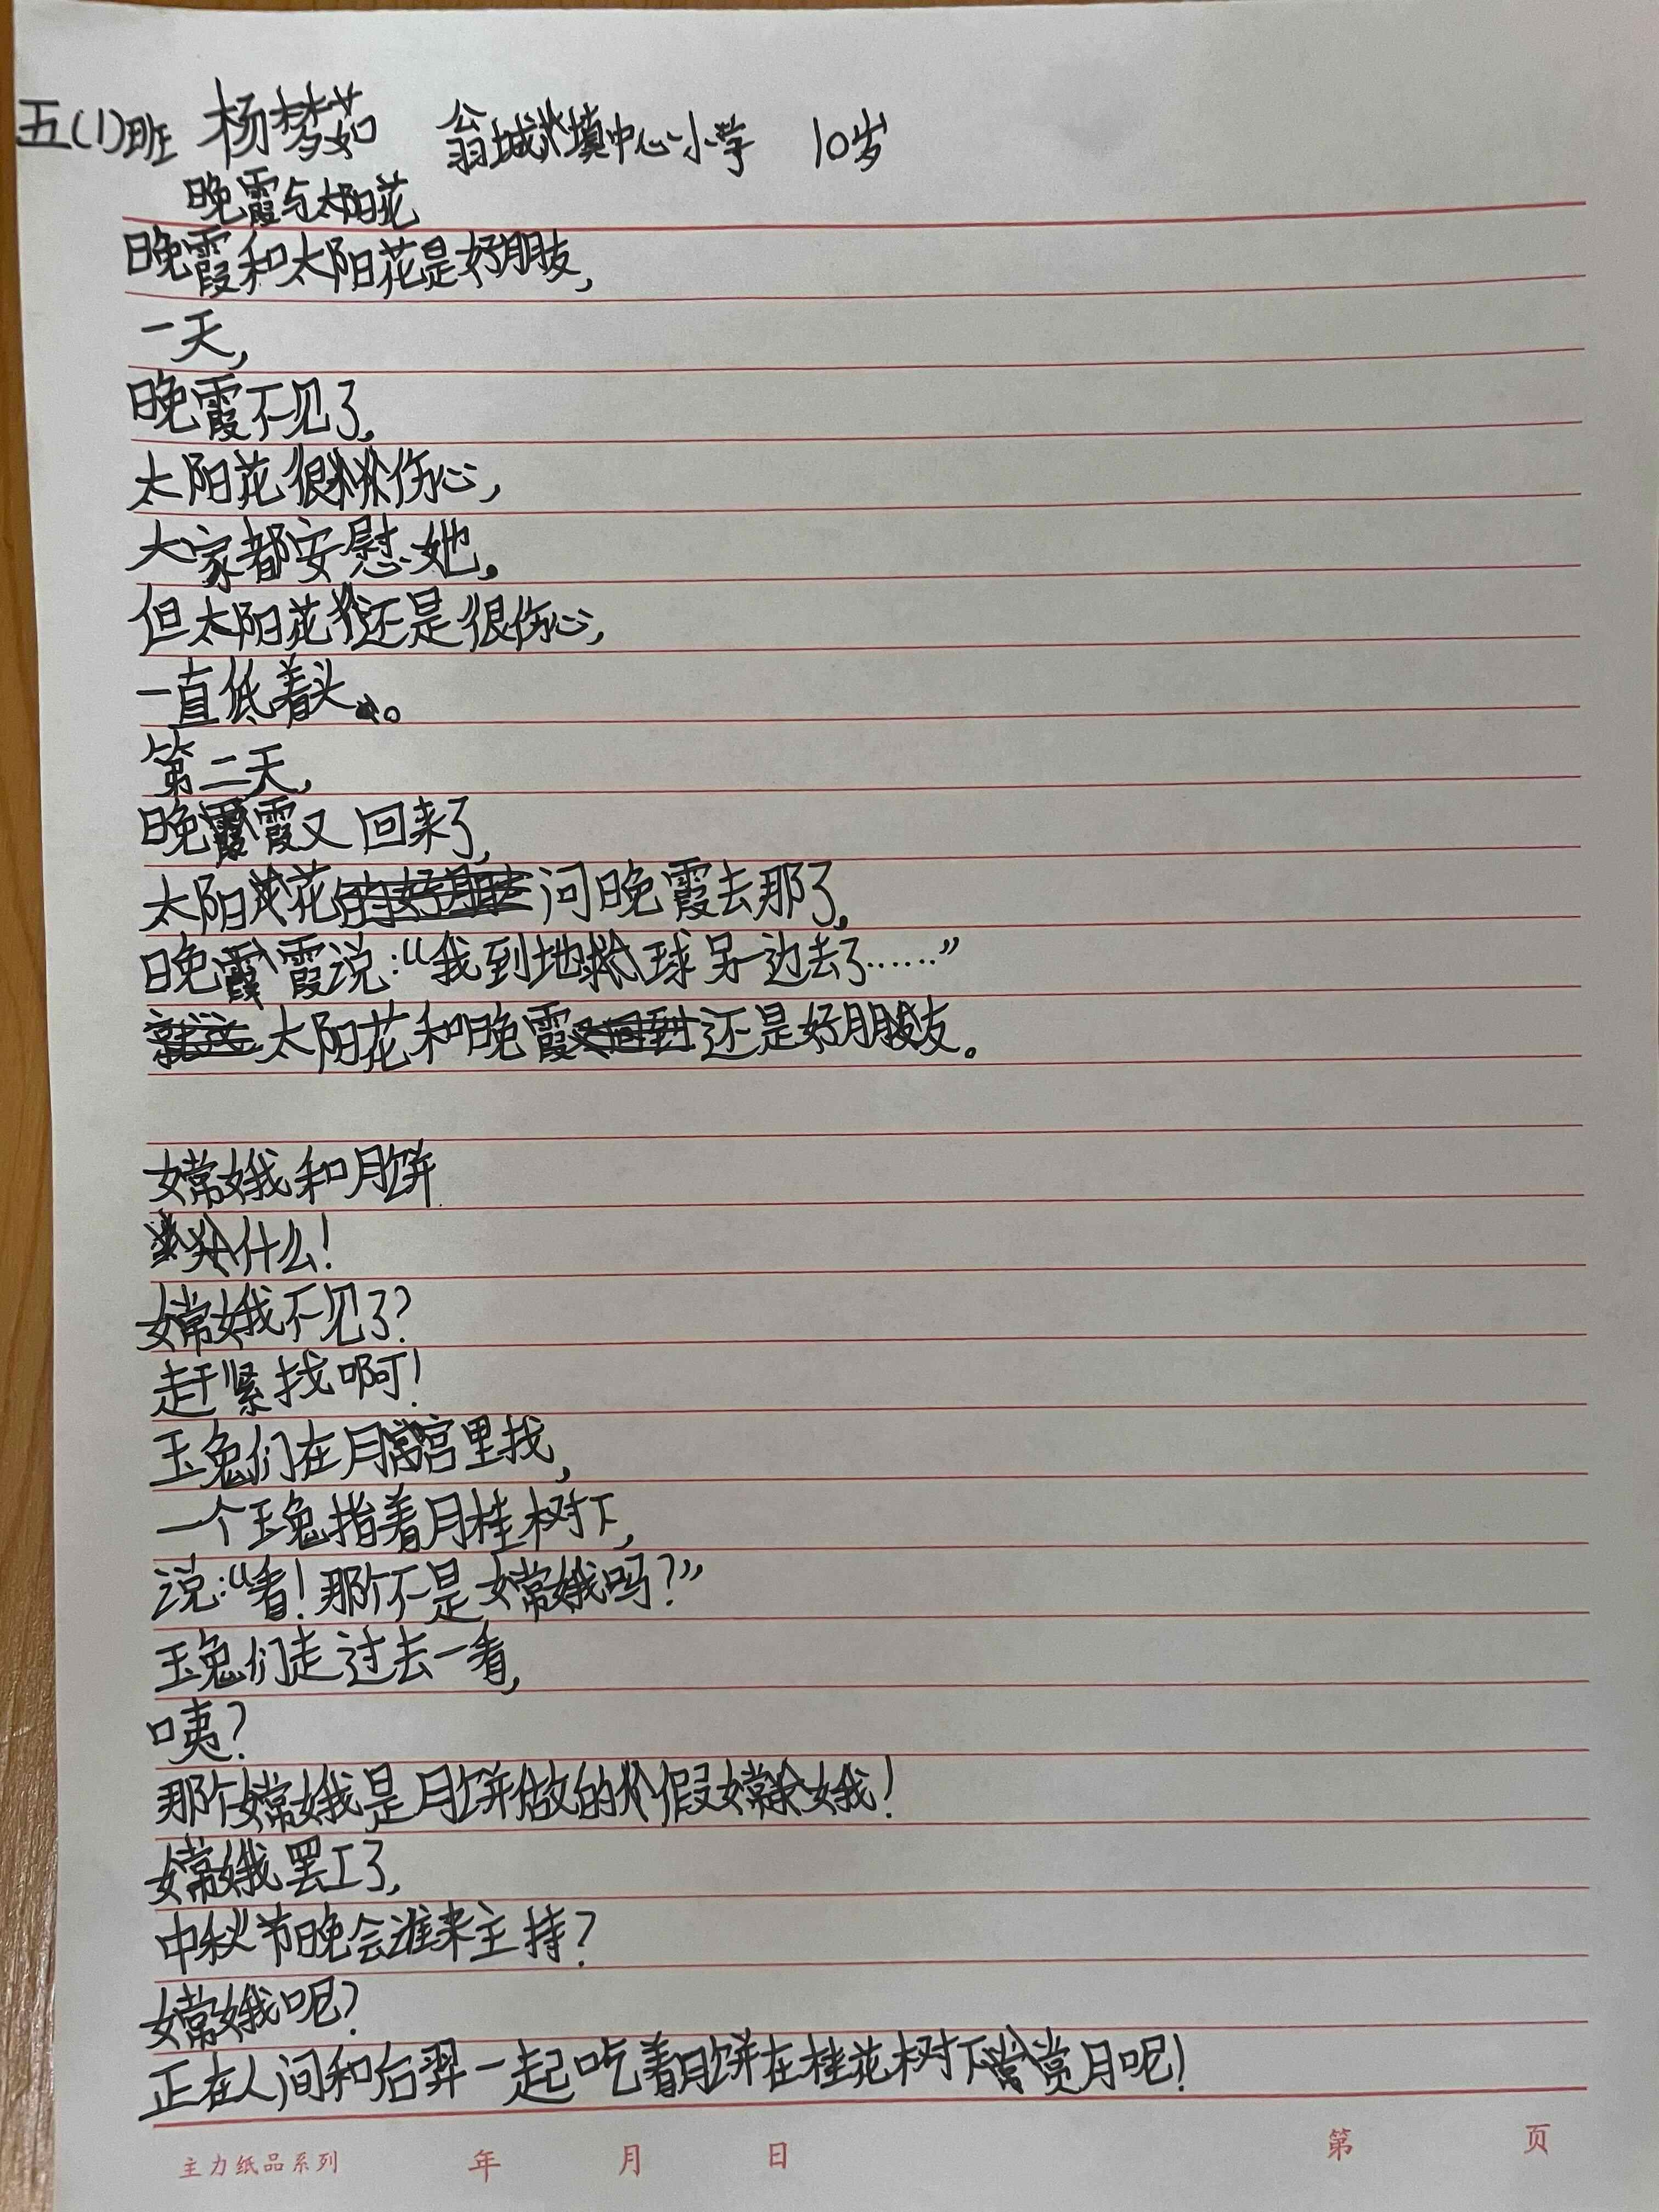 五(1)班 杨梦茹 翁城镇中心小学 10岁
晚霞与太阳花
晚霞和太阳花是好朋友,
一天,
晚霞不见了,
太阳花很伤心,
大家都安慰她。
但太阳花还是很伤心,
一直低着头。
第二天,
晚霞又回来了,
太阳花问晚霞去那了,
晚霞说:“我到地球另一边去了……”
太阳花和晚霞还是好朋友。
嫦娥和月饼
什么!
嫦娥不见了?
赶紧找啊!
玉兔们在月宫里找,
一个玉兔指着月桂树下,
说:“看!那个不是嫦娥吗?”
玉兔们走过去一看,
咦?
那个嫦娥是月饼做的假嫦娥!
嫦娥罢工了,
中秋节晚会谁来主持?
嫦娥呢?
正在人间和后羿一起吃着月饼在桂花树下赏月呢!
主力纸品系列 年 月 日 第 页